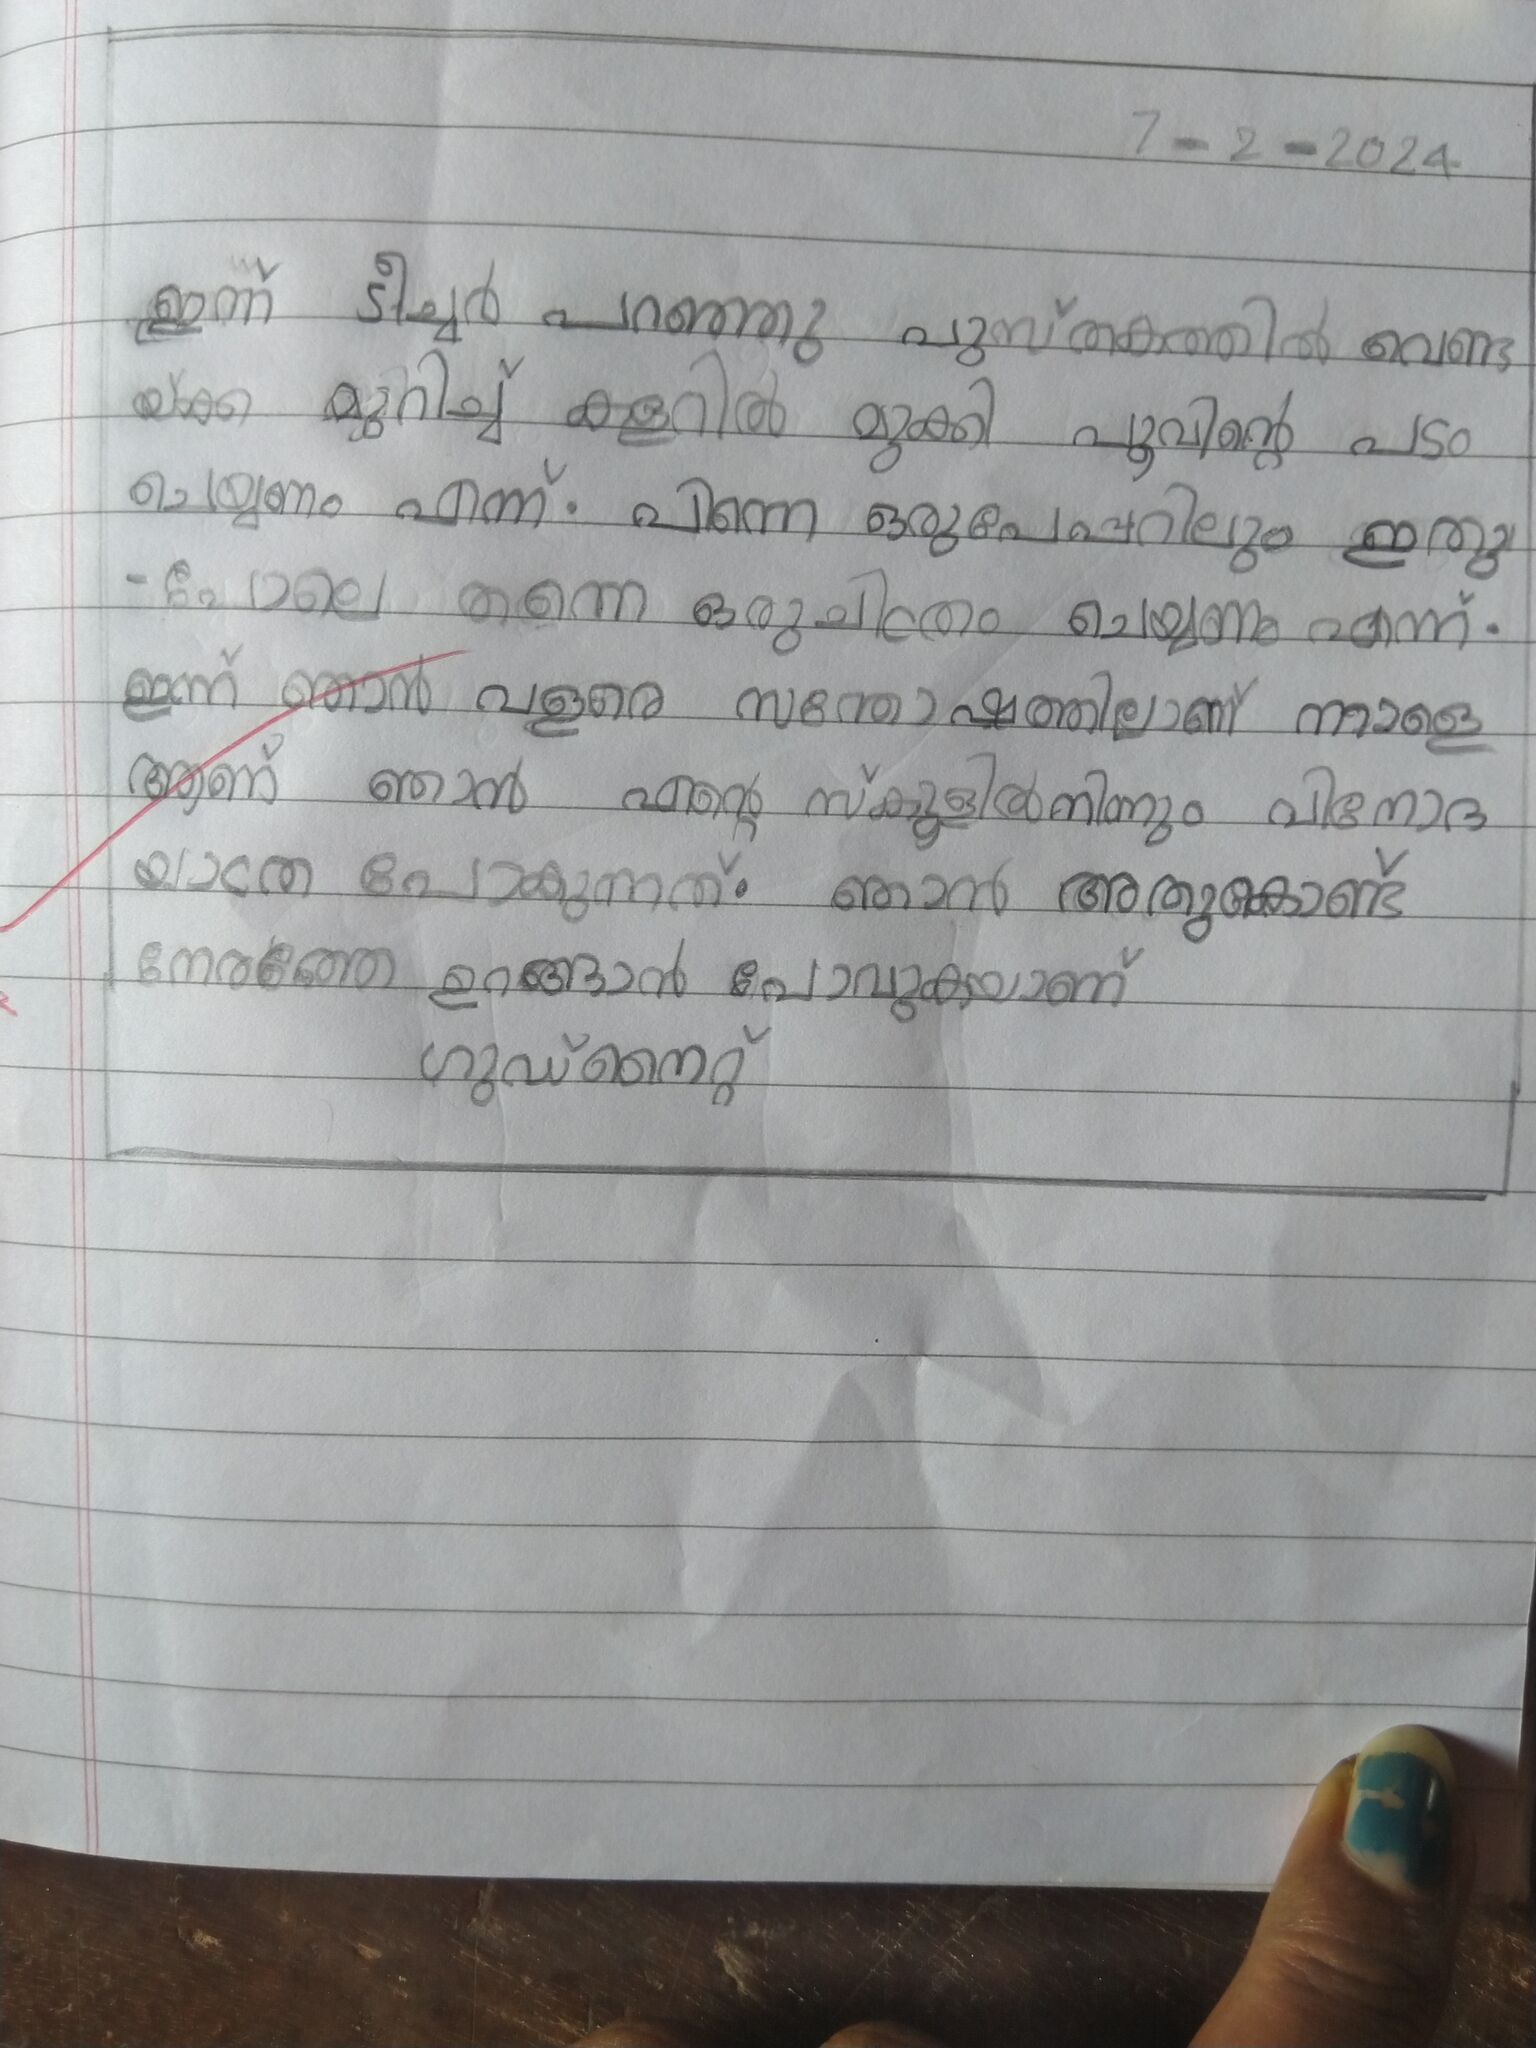 7-2-2024
ഇന്ന് ടീച്ചർ പറഞ്ഞു പുസ്തകത്തിൽ വെണ്ട
യ്ക്ക മുറിച്ച് കളറിൽ മുക്കി പൂവിന്റെ പടം
ചെയ്യണം എന്ന്. പിന്നെ ഒരുപേപ്പറിലും ഇതു
-പോലെ തന്നെ ഒരുചിത്രം ചെയ്യണം എന്ന്.
ഇന്ന് ഞാൻ വളരെ സന്തോഷത്തിലാണ് നാളെ
ആണ് ഞാൻ എന്റെ സ്കൂളിൽനിന്നും വിനോദ
യാത്ര പോകുന്നത്. ഞാൻ അതുകൊണ്ട്
നേരത്തേ ഉറങ്ങാൻ പോവുകയാണ്
ഗുഡ്നൈറ്റ്